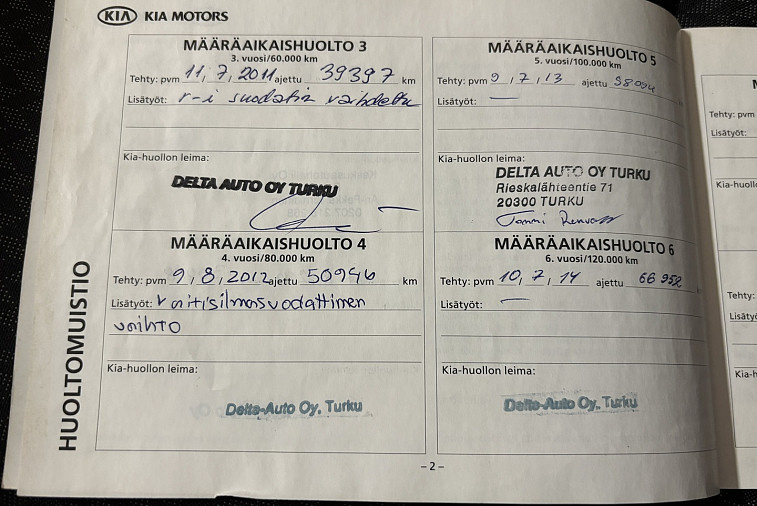 KIA KIA MOTORS
MÄÄRÄAIKAISHUOLTO 3
3. vuosi/60.000 km
Tehty: pvm 11, 7, 2011 ajettu 39397 km
Lisätyöt: r-i suodatin vaihdettu
Kia-huollon leima:
DELTA AUTO OY TURKU
MÄÄRÄAIKAISHUOLTO 4
4. vuosi/80.000 km
Tehty: pvm 9, 8, 2012 ajettu 50946 km
Lisätyöt: raitisilmasuodattimen
vaihto
Kia-huollon leima:
Delta-Auto Oy, Turku
MÄÄRÄAIKAISHUOLTO 5
5. vuosi/100.000 km
Tehty: pvm 9, 7, 13 ajettu
Lisätyöt: —
Kia-huollon leima:
DELTA AUTO OY TURKU
Rieskalähteentie 71
20300 TURKU
Tommi
MÄÄRÄAIKAISHUOLTO 6
6. vuosi/120.000 km
Tehty: pvm 10, 7, 14 ajettu 66952 km
Lisätyöt: —
Kia-huollon leima:
Delta-Auto Oy, Turku
HUOLTOMUISTIO
-2-
Tehty: pvm
Lisätyöt:
Tehty: